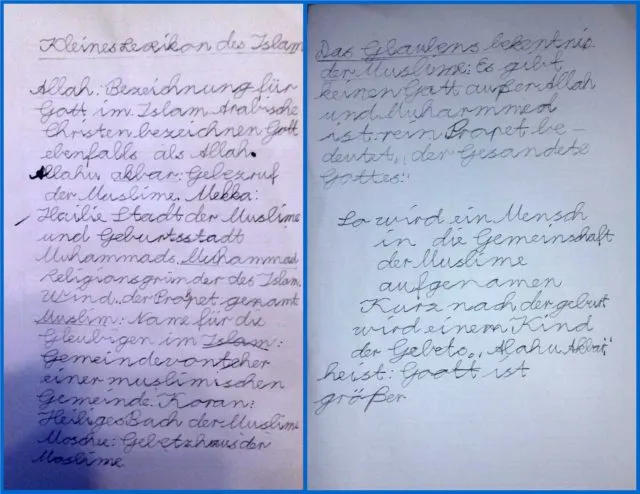 Kleines Lexikon des Islam
Allah: Bezeichnung für
Gott im Islam Arabische
Christen bezeichnen Gott
ebenfalls als Allah.
Allahu akbar: Gebesruf
der Muslime. Mekka:
Hailie Stadt der Muslime
und Geburtsstadt
Muhammads. Muhammad
Religionsgründer des Islam.
Wird der Prophet genamt
Muslim: Name für die
Gleubigen im Islam:
Gemeindevorsteher
einer muslimischen
Gemeinde. Koran:
Heiliges Bach der Muslime
Moschu: Gebetzhaus der
Moslime
Das Glaubens bekentnis
der Muslime: Es gibt
keinen Gott außer Allah
und Muhammed
ist rein Propet be-
deutet, „der Gesandete
Gottes"
So wird ein Mensch
in die Gemeinschaft
der Muslime
aufgenamen
Kurz nach der geburt
wird einem Kind
der Gebets „Alahu Akbar"
heist: Goott ist
größer